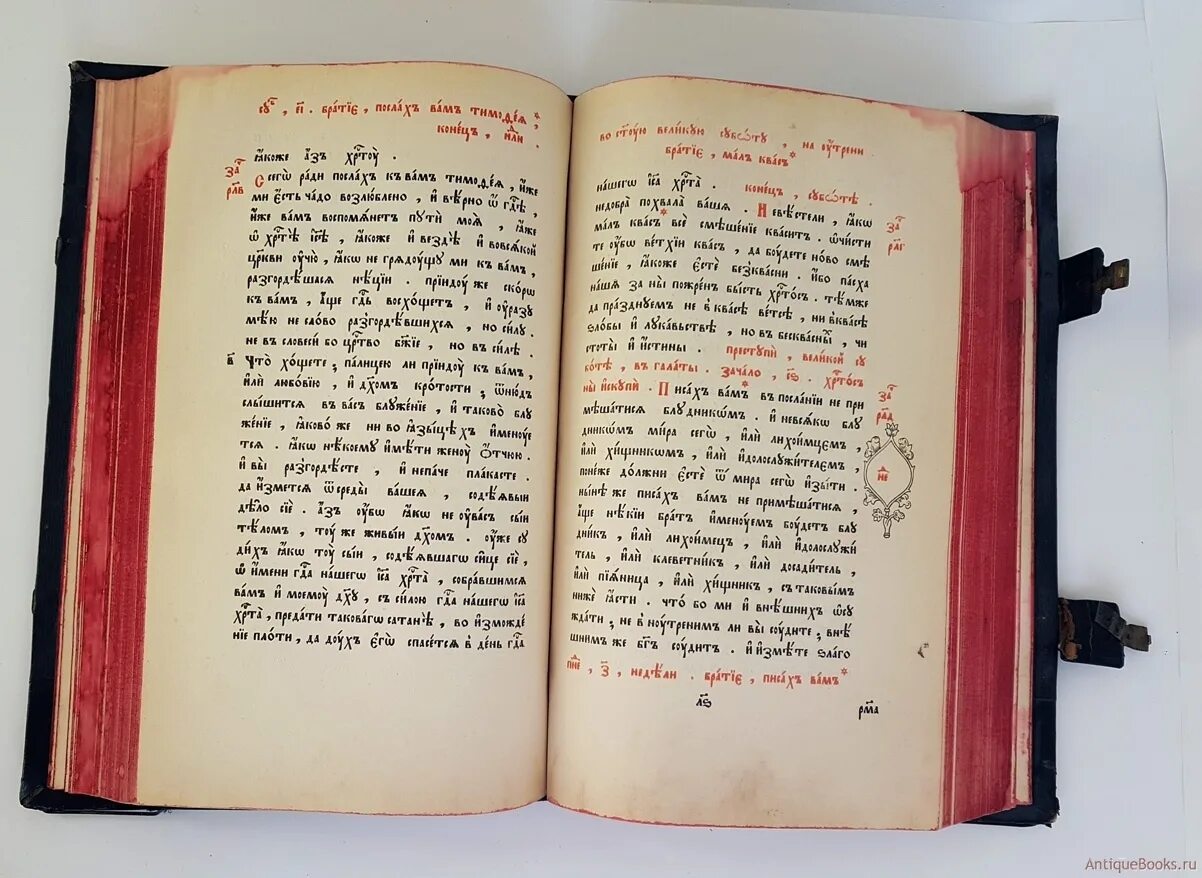 суⷠ , є҃і . бра́тїе , посла́хъ ва́мъ тимоѳе́а * ,
коне́цъ , нⷣли .
ꙗ҆́коже а҆́зъ хрⷭ҇тоу̀ .
заⷱ҇ рл҃в
С сегѡ̀ ра́ди посла́хъ к ва́мъ тимоѳе́а , и҆́же
ми є҆́сть ча́до возлю́блено , и҆ вѣ́рно ѡ҆ гдⷭ҇ѣ ,
и҆́же ва́мъ воспомѧ́нетъ пути̑ моѧ̑ , ꙗ҆̀же
ѡ҆ хрⷭ҇тѣ̀ і҆сѣ , ꙗ҆́коже и҆ вездѣ̀ и҆ вовсѧ́кой
цр҃кви оу҆чю̀ , ꙗ҆́кѡ не грѧдоу́щу ми к ва́мъ ,
разгордѣ́шасѧ нѣ́цїи . прїидоу́ же ско́рѡ
к ва́мъ , а҆́ще гдⷭ҇ь восхо́щетъ , и҆ оу҆разу
мѣ́ю не сло́во разгордѣ́вшихсѧ , но си́лу .
не в словесѝ бо црⷭ҇тво бж҃їе , но в си́лѣ .
в҃ Что̀ хо́щете ; па́лицею ли прїидоу̀ к ва́мъ ,
и҆лѝ любо́вїю , и҆ дх҃омъ кро́тости ; ѿню́дъ
слы́шитсѧ в ва́съ блуже́нїе , и҆ таково̀ блу
же́нїе , ꙗ҆ково́ же ни во ꙗ҆зы́цѣхъ и҆меноу́е
тсѧ . ꙗ҆́кѡ нѣ́коему и҆мѣ́ти женоу̀ ѻ҆́тчюю .
и҆ вы̀ разгордѣ́сте , и҆ непа́че пла́касте .
да и҆́зметсѧ ѿ среды̀ ва́шеѧ , содѣ́ѧвыи
дѣ́ло сїѐ . а҆́зъ оу҆́бѡ ꙗ҆́кѡ не оу҆ва́съ сы́и
тѣ́ломъ , тоу́ же живы́и дх҃омъ . оу҆жѐ су
ди́хъ ꙗ҆́кѡ тоу̀ сы́и , содѣ́ѧвшагѡ си́це сїѐ ,
ѡ҆ и҆́мени гдⷭ҇а на́шегѡ і҆с҃а хрⷭ҇та̀ , собра́вшимсѧ
ва́мъ и҆ моемоу̀ дх҃у , с си́лою гдⷭ҇а на́шегѡ і҆с҃а
хрⷭ҇та̀ , преда́ти такова́гѡ сатанѣ̀ , во и҆зможде́
нїе пло́ти , да доу́хъ є҆гѡ̀ спасе́тсѧ в де́нь гдⷭ҇а
во ст҃оу́ю вели́кую суббо́ту , на оу҆́трени
бра́тїе , ма́лъ ква́съ *
на́шегѡ і҆с҃а хрⷭ҇та̀ . коне́цъ , суббо́тѣ .
заⷱ҇ рл҃г
недобра̀ похвала̀ ва́ша . Невѣ́стели , ꙗ҆́кѡ
ма́лъ ква́съ * всѐ смѣше́нїе ква́ситъ . ѡ҆чи́сти
те оу҆́бѡ ве́тхїи ква́съ , да боу́дете но́во смѣ
ше́нїе , ꙗ҆́коже є҆стѐ безква́сни . и҆́бо па́сха
на́ша за ны̀ пожре́нъ бы́сть хрⷭ҇то́съ . тѣ́мже
да пра́зднуемъ не в ква́сѣ ве́тсѣ , ни в ква́сѣ
ѕло́бы и҆ лука́вьствѣ , но в бесква́сиⷯ , чи
стоты̀ и҆ и҆́стины . преступѝ , вели́кой су
бо́тѣ , в гала́ты . зача́ло , с҃ѕ . хрⷭ҇то́съ
ны̀ и҆скупѝ . Писа́хъ ва́мъ * в посла́нїи не при
заⷱ҇ рл҃д
мѣша́тисѧ блудникѡ́мъ . и҆ невсѧ́кѡ блу
дникѡ́мъ ми́ра сегѡ̀ , и҆лѝ лихои́мцемъ ,
и҆лѝ хи́щникѡмъ , и҆лѝ і҆долослужи́телемъ ,
пⷩ҇е
поне́же до́лжни є҆стѐ ѿ ми́ра сегѡ̀ и҆зы́ти .
ны́нѣ же писа́хъ ва́мъ не примѣша́тисѧ ,
а҆́ще нѣ́кїи бра́тъ и҆меноу́емъ боу́детъ блу
дни́къ , и҆лѝ лихои́мецъ , и҆лѝ і҆долослужи́
тель , и҆лѝ клеветни́къ , и҆лѝ досади́тель ,
и҆лѝ пїѧ́ница , и҆лѝ хи́щникъ , с таковы́мъ
нижѐ ꙗ҆́сти . что́ бо ми и҆ внѣ́шнихъ ѡ҆су
жда́ти ; не в ноу́треннимъ ли вы̀ соу́дите ; внѣ́
шнимъ же бг҃ъ соу́дитъ . и҆ и҆зми́те ѕла́го
пⷩ҇е , з҃ , недѣ́ли . бра́тїе , писа́хъ ва́мъ *
л҃ѕ
рм҃а
AntiqueBooks.ru